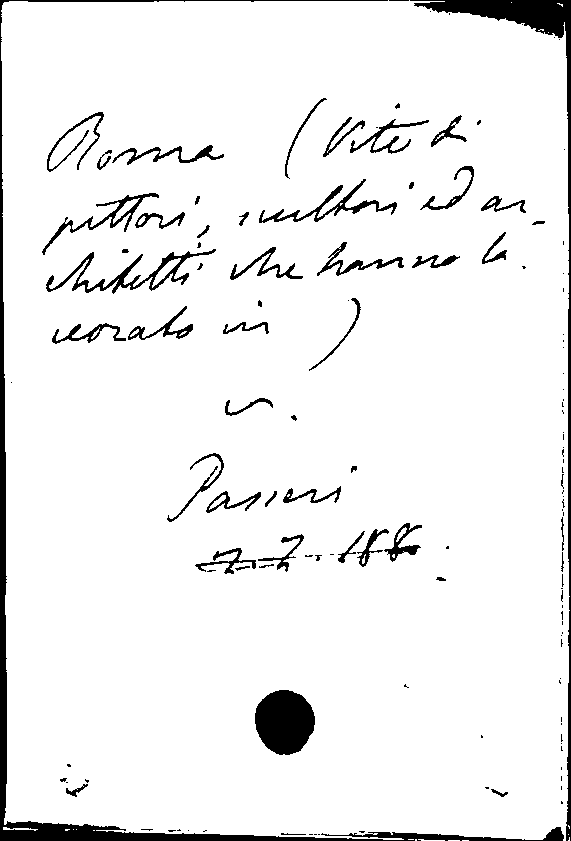 Roma (Vite di
pittori, scultori ed ar-
chitetti che hanno la-
vorato in)
v.
Passeri
Z. Z. 188